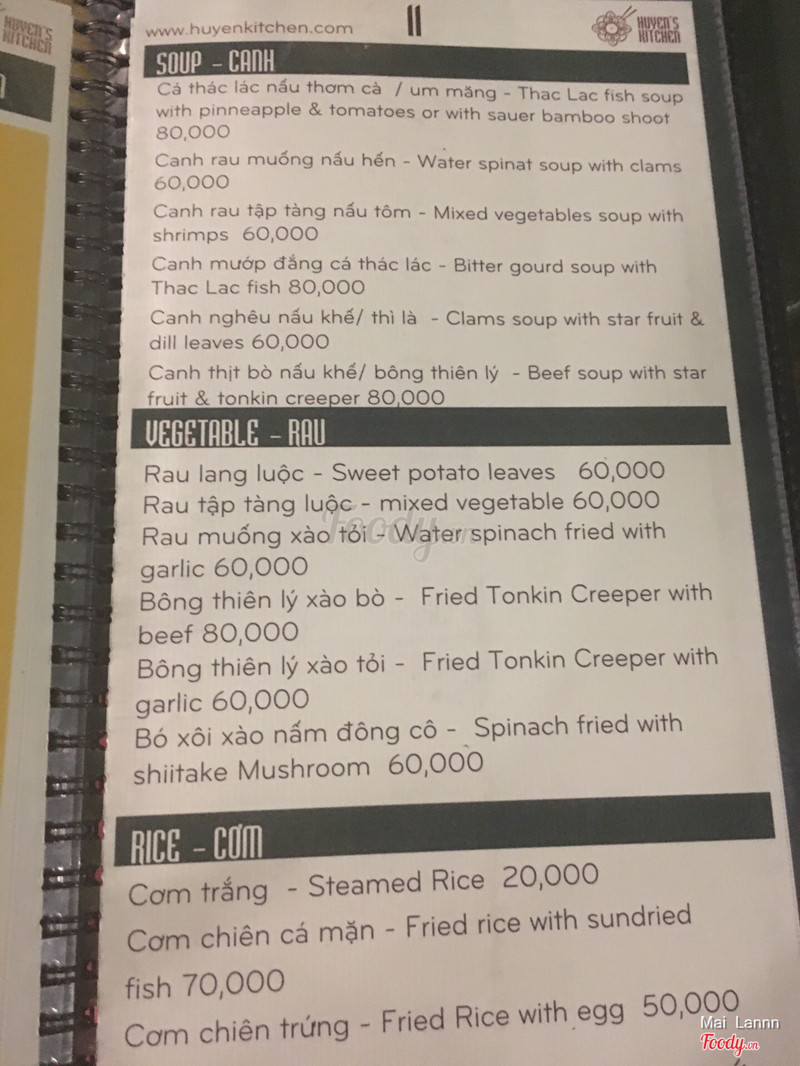 HUYEN'S
KITCHEN
www.huyenkitchen.com
11
HUYEN'S
KITCHEN
SOUP - CANH
Cá thác lác nấu thơm cà / um măng - Thac Lac fish soup
with pinneapple & tomatoes or with sauer bamboo shoot
80,000
Canh rau muống nấu hến - Water spinat soup with clams
60,000
Canh rau tập tàng nấu tôm - Mixed vegetables soup with
shrimps 60,000
Canh mướp đắng cá thác lác - Bitter gourd soup with
Thac Lac fish 80,000
Canh nghêu nấu khế/ thì là - Clams soup with star fruit &
dill leaves 60,000
Canh thịt bò nấu khế/ bông thiên lý - Beef soup with star
fruit & tonkin creeper 80,000
VEGETABLE - RAU
Rau lang luộc - Sweet potato leaves 60,000
Rau tập tàng luộc - mixed vegetable 60,000
Rau muống xào tỏi - Water spinach fried with
garlic 60,000
Bông thiên lý xào bò - Fried Tonkin Creeper with
beef 80,000
Bông thiên lý xào tỏi - Fried Tonkin Creeper with
garlic 60,000
Bó xôi xào nấm đông cô - Spinach fried with
shiitake Mushroom 60,000
RICE - CƠM
Cơm trắng - Steamed Rice 20,000
Cơm chiên cá mặn - Fried rice with sundried
fish 70,000
Cơm chiên trứng - Fried Rice with egg 50,000
Foody.vn
Mai Lannn
Foody.vn